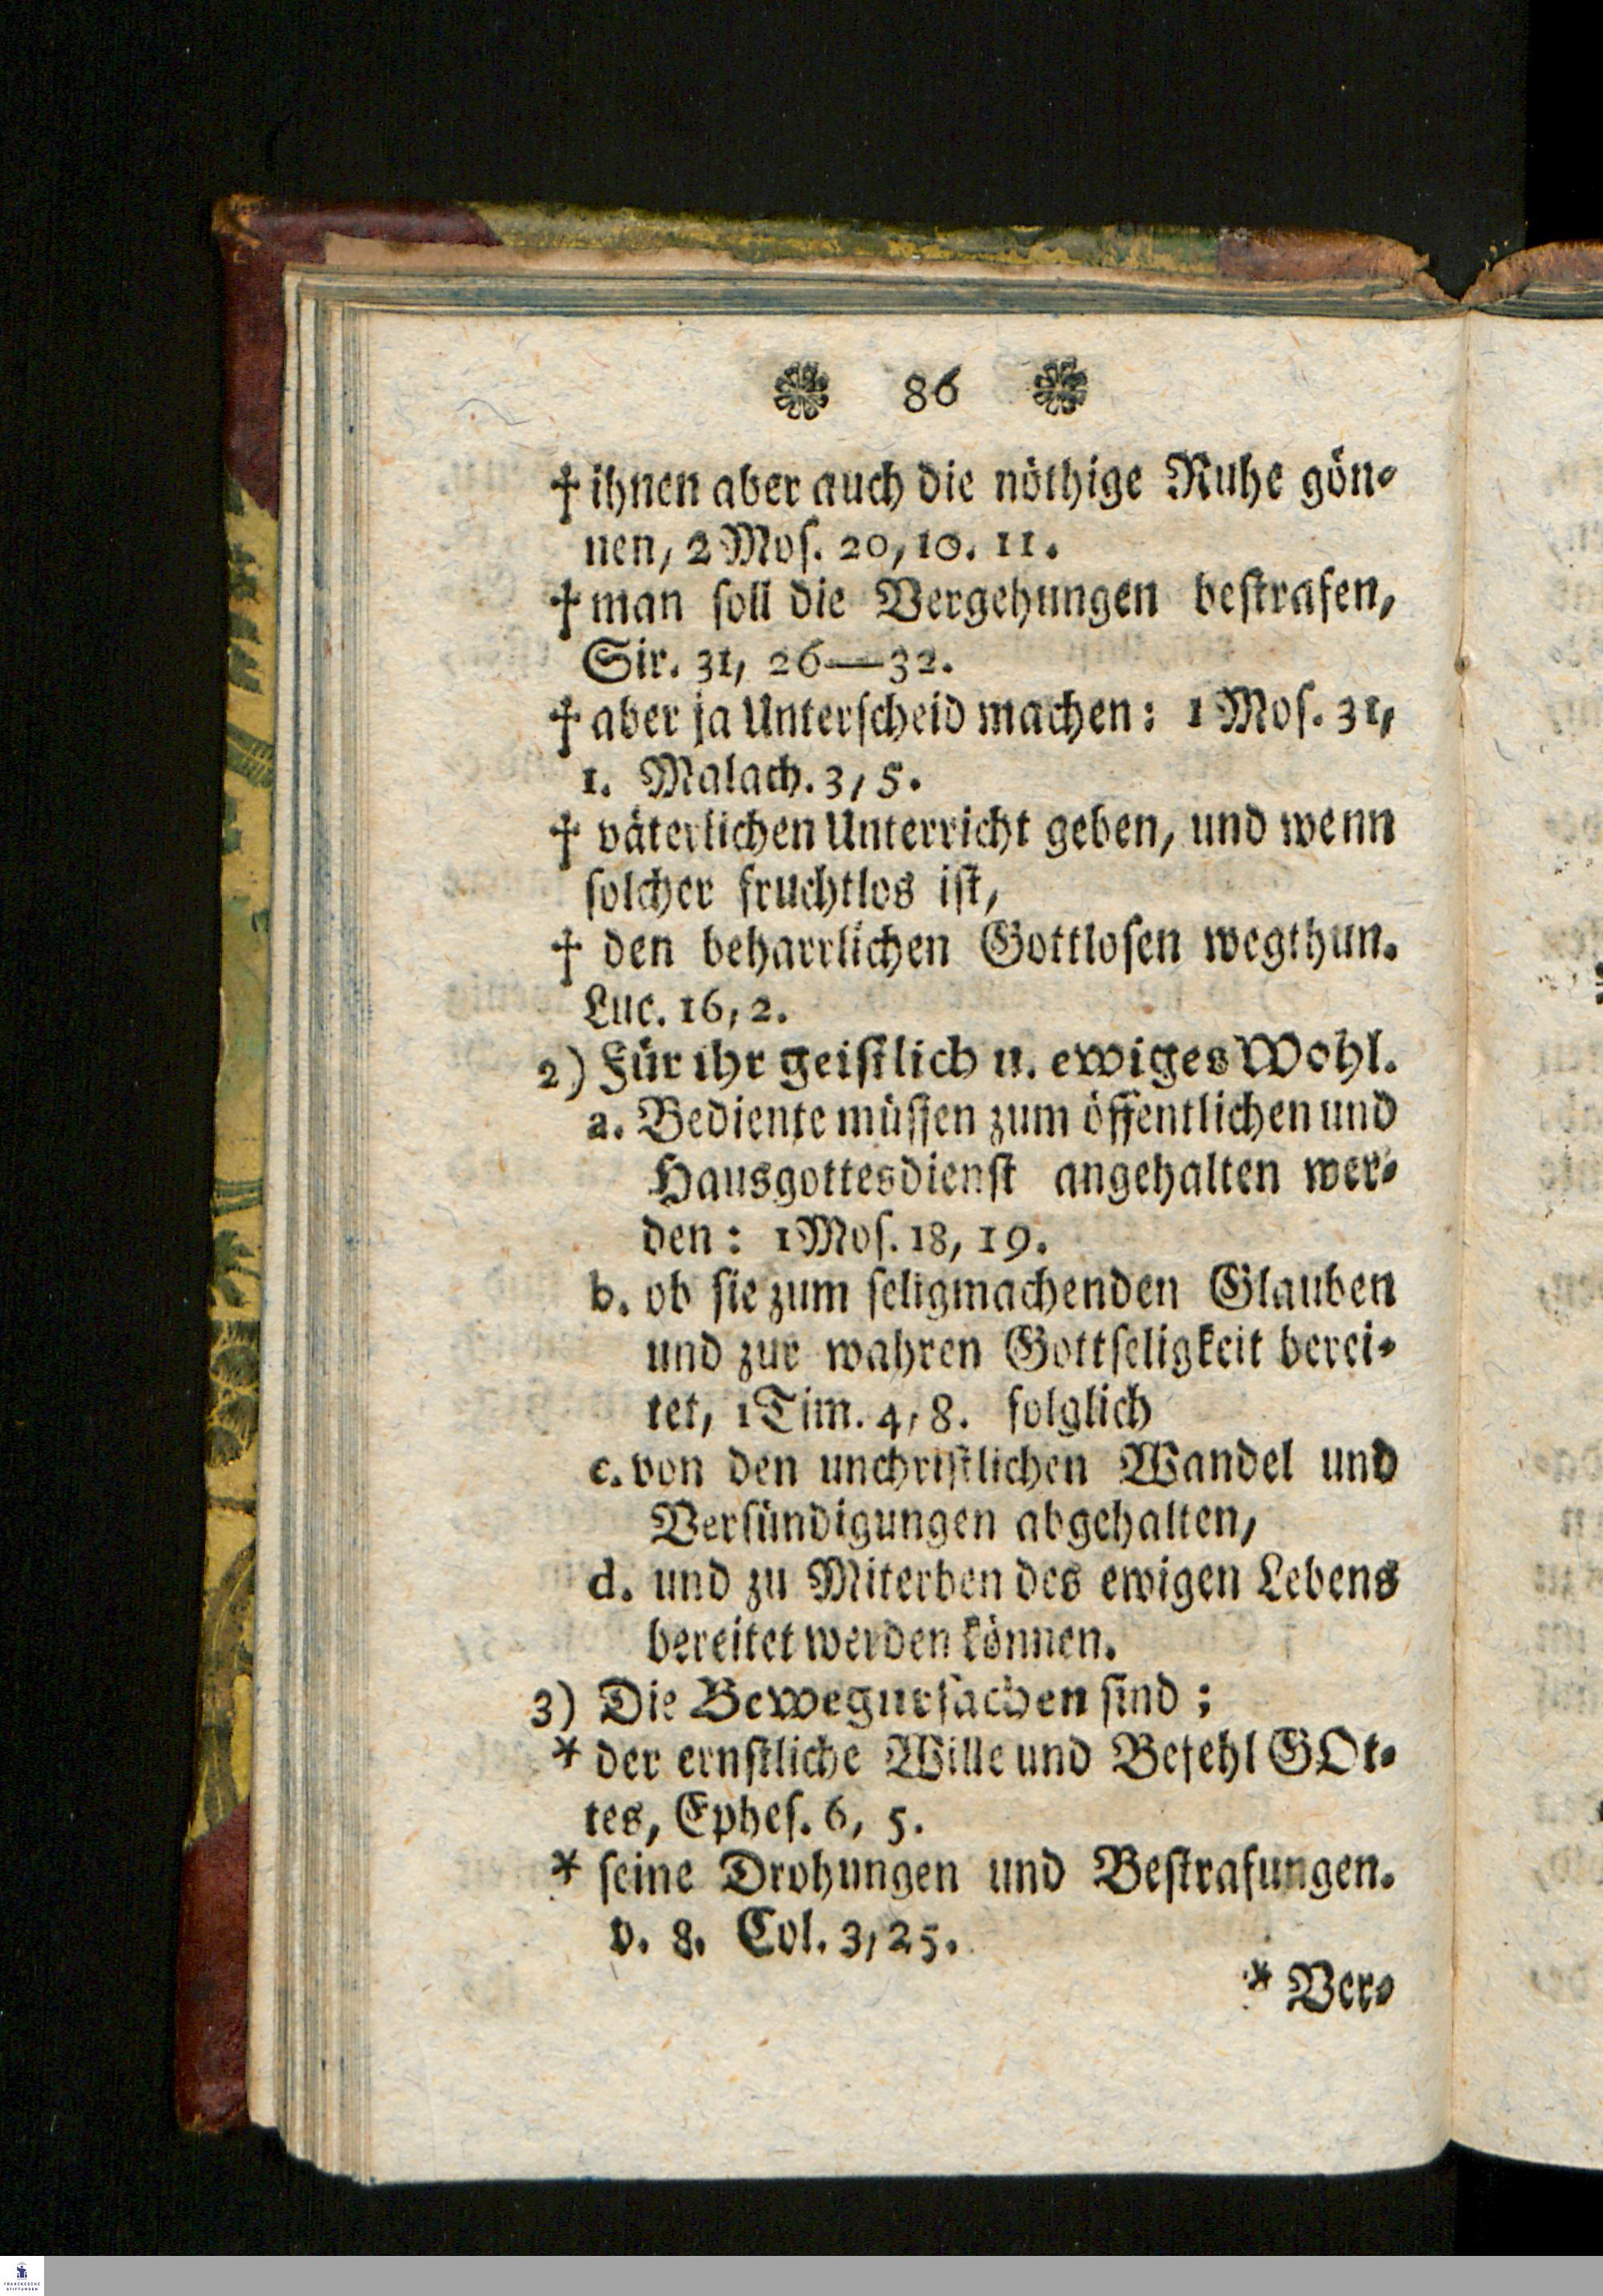 86
† ihnen aber auch die nöthige Ruhe gön-
nen, 2 Mos. 20, 10. 11.
† man soll die Vergehungen bestrafen,
Sir. 31, 26—32.
† aber ja Unterscheid machen: 1 Mos. 31,
1. Malach. 3, 5.
† väterlichen Unterricht geben, und wenn
solcher fruchtlos ist,
† den beharrlichen Gottlosen wegthun.
Luc. 16, 2.
2) Für ihr geistlich u. ewiges Wohl.
a. Bediente müssen zum öffentlichen und
Hausgottesdienst angehalten wer-
den: 1 Mos. 18, 19.
b. ob sie zum seligmachenden Glauben
und zur wahren Gottseligkeit berei-
tet, 1 Tim. 4, 8. folglich
c. von den unchristlichen Wandel und
Versündigungen abgehalten,
d. und zu Miterben des ewigen Lebens
bereitet werden können.
3) Die Bewegursachen sind:
* der ernstliche Wille und Befehl GOt-
tes, Ephes. 6, 5.
* seine Drohungen und Bestrafungen.
v. 8. Col. 3, 25.
* Ver-
FRANCKESCHE
STIFTUNGEN